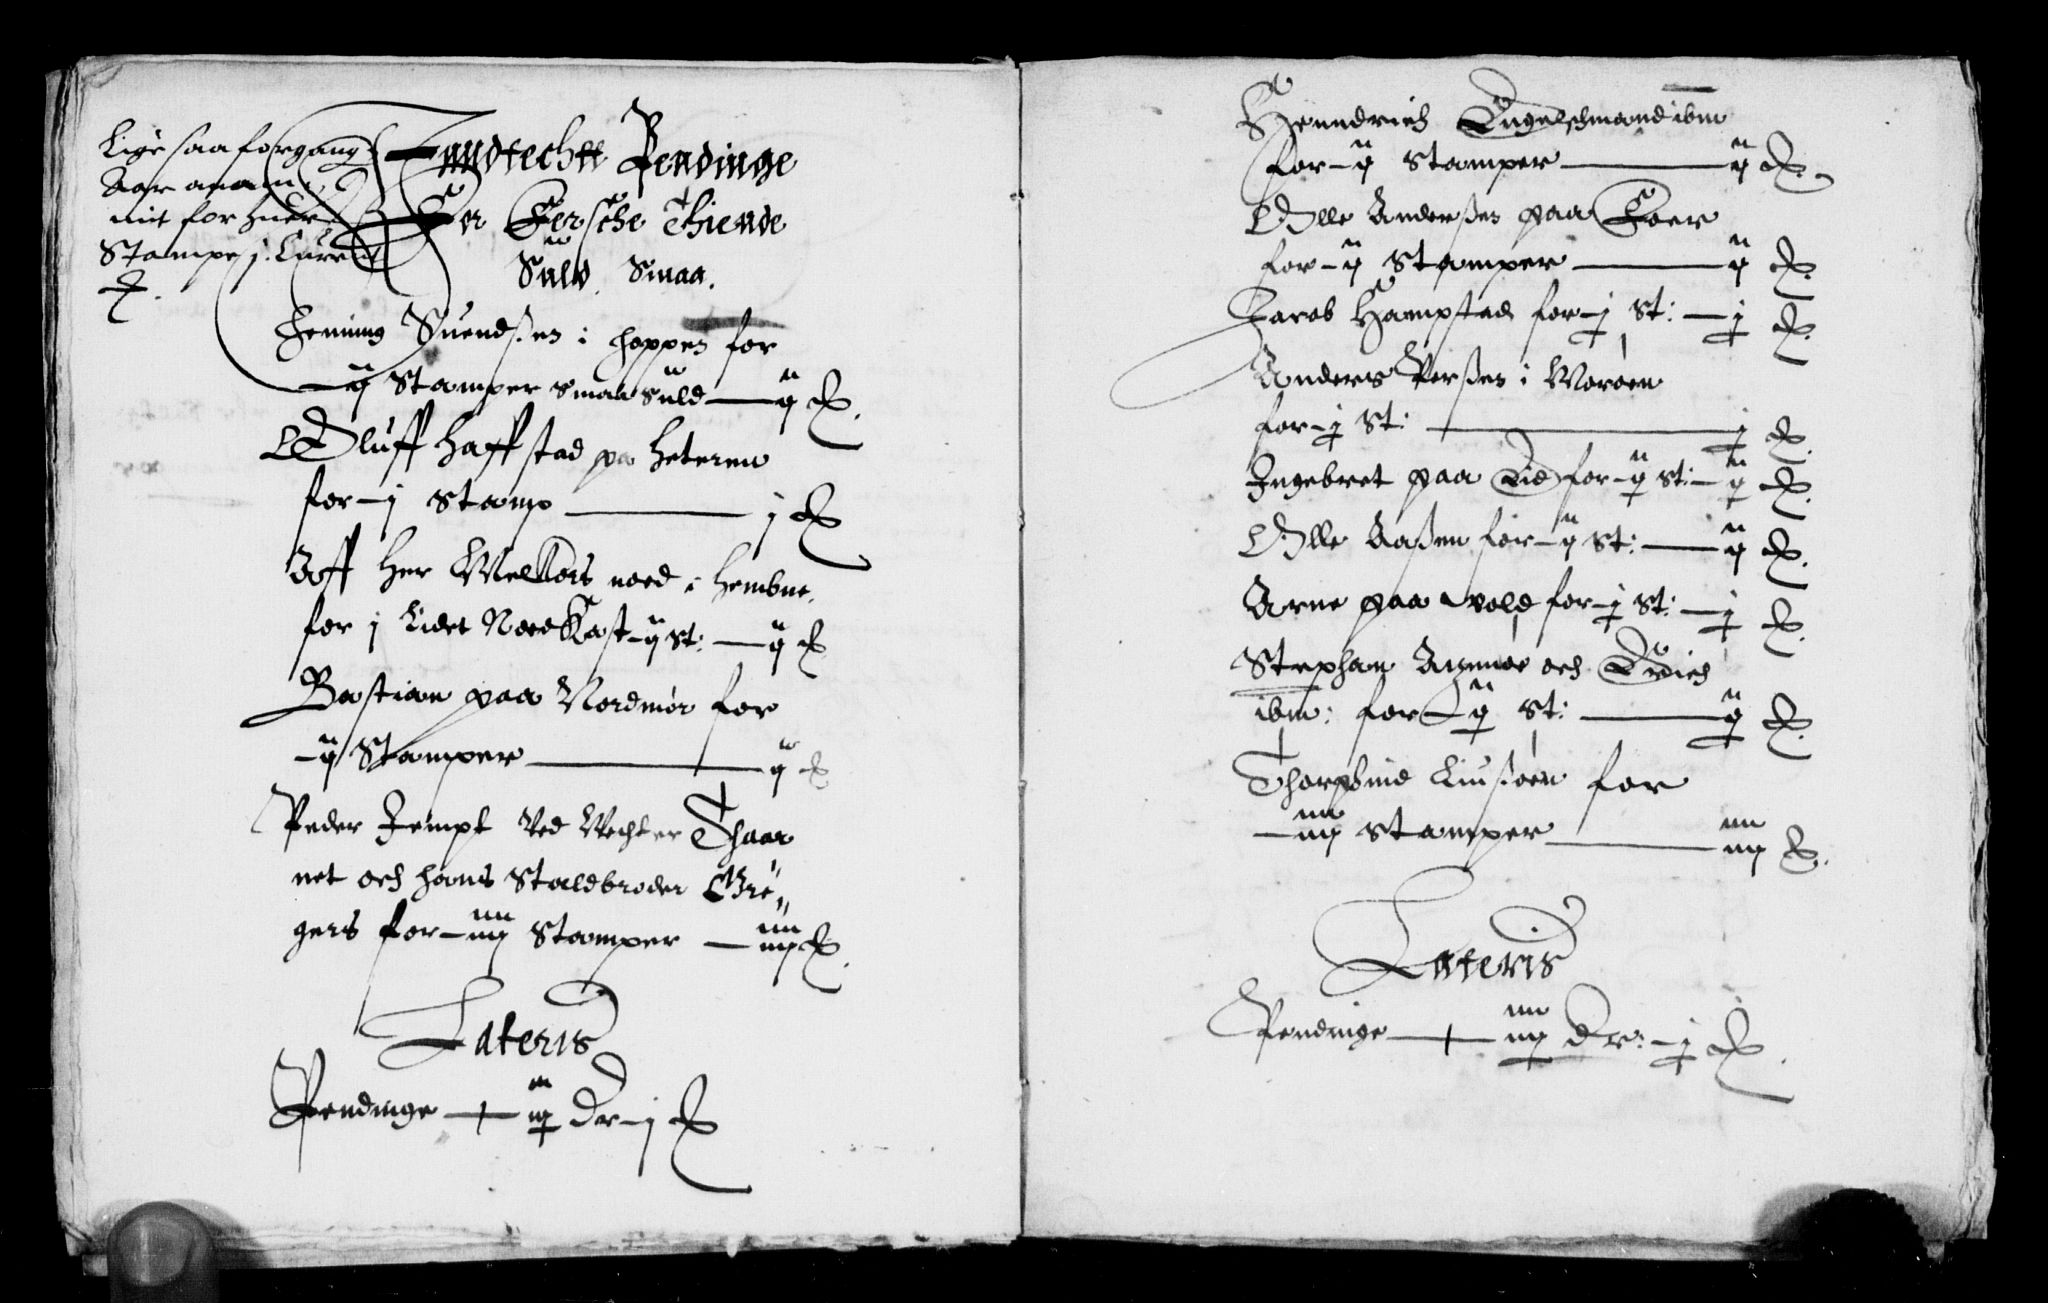 Lige saa forgang
Aar anam
mit for huer
Stampe j: Curent
Inndtechtt Pendinge
For Fersche Thiende
Suld Smaa.
Henning Suendßen i hoppen for
–ij Stamper smaa Suld — ij
Oluff haffstad pa heteren
for – j Stamp — j
Aff Her Melkors noed i Hembne
for j Lidet Noed Kast – ij St: — ij
Bastian paa Nordmør for
–ij Stamper — ij
Peder Jempt Ved Wechter Thaar
net och hans Staldbroder Gre„
gers for – iiij Stamper — iiij
Lateris
Pendinge — iij Dr – j
Henndrich Engelschmand ibm
for – ij Stamper — ij
Olle Anderßen paa Foer
for – ij Stamper — ij
Jacob Hampstad for – j St: — j
Anders Perßen i Woroen
for – j St: — j
Ingebret paa Eid for – ij St: — ij
Olle Aaßen for – ij St: — ij
Arne paa Wold for – j St: — j
Stephan och
ibm: for – ij St: — ij
Thorphind Liusøen for
– iiij Stamper — iiij
Lateris
Pendinge — iiij Dr: – j